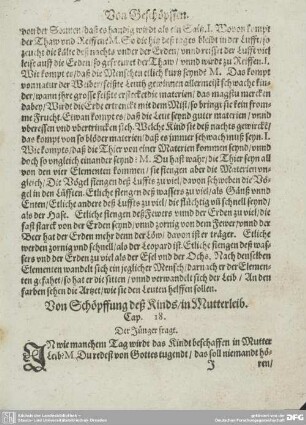 Von Geschöpffen.
von der Sonnen / daß es harzig wirdt als ein Saltz. I. Wovon kompt
der Thaw vnd Reiffen? M. So die hitz deß tages bleibt in der Lufft / so
zeucht die kälte deß nachts vnder der Erden / vnnd reisset der Lufft viel
leist auff die Erden / so gefreuret der Thaw / vnnd wirdt zu Reiffen. I.
Wie kompt es / daß die Menschen etlich kurtz seynd? M. Das kompt
von natur der Weiber /
der / wann ihre grosse
dabey / Würde die Erde ertrenckt mit dem Mist / so bringt sie kein from
me Frucht. Etwan kompt es / daß die Leut seynd guter materien / vnd
vberessen vnd vbertrincken sich / Welche Kindt sie deß nachts gewirckt /
das kompt von so blöder materien / daß es immer schwach muß seyn. I.
Wie kompts / daß die Thier von einer Materien kommen seynd / vnnd
doch so vngleich einander seynd? M. Du hast wahr / die Thier seyn all
von den vier Elementen kommen / sie stengen aber die Materien vn-
gleich / Die Vögel stengen deß Luffts zu viel / davon schweben die Vö-
gel in den Lüfften. Etliche stengen deß wassers zu viel / als Gänß vnnd
Enten / Etliche anders deß Luffts zu viel / die flüchtig vñ schnell seynd /
als der Hase. Etliche stengen deß Fewers vnnd der Erden zu viel / die
fast starck von der Erden seynd / vnnd zornig von dem Fewer / vnnd der
Beer hat der Erden mehr denn der Löw / davon ist er träger. Etliche
werden zornig vnnd schnell / als der Leopard ist. Etliche stengen deß was-
sers vnd der Erden zu viel als der Esel vnd der Ochs. Nach denselben
Elementen wandelt sich ein jeglich Mensch / darnach er der Elemen-
ten gefast / so hat er die sitten / vnnd verwandelt sich der Leib / An den
farben sehen die Artzet / wie sie den Leuten helffen sollen.
Von Schöpffung deß Kinds / in Mutterleib.
Cap. 18.
Der Jünger fragt.
IN wie manchem Tag wirdt das Kindt beschaffen in Mutter
Leib? M. Du redest von Gottes tugendt / das soll niemandt hö-
J ren /